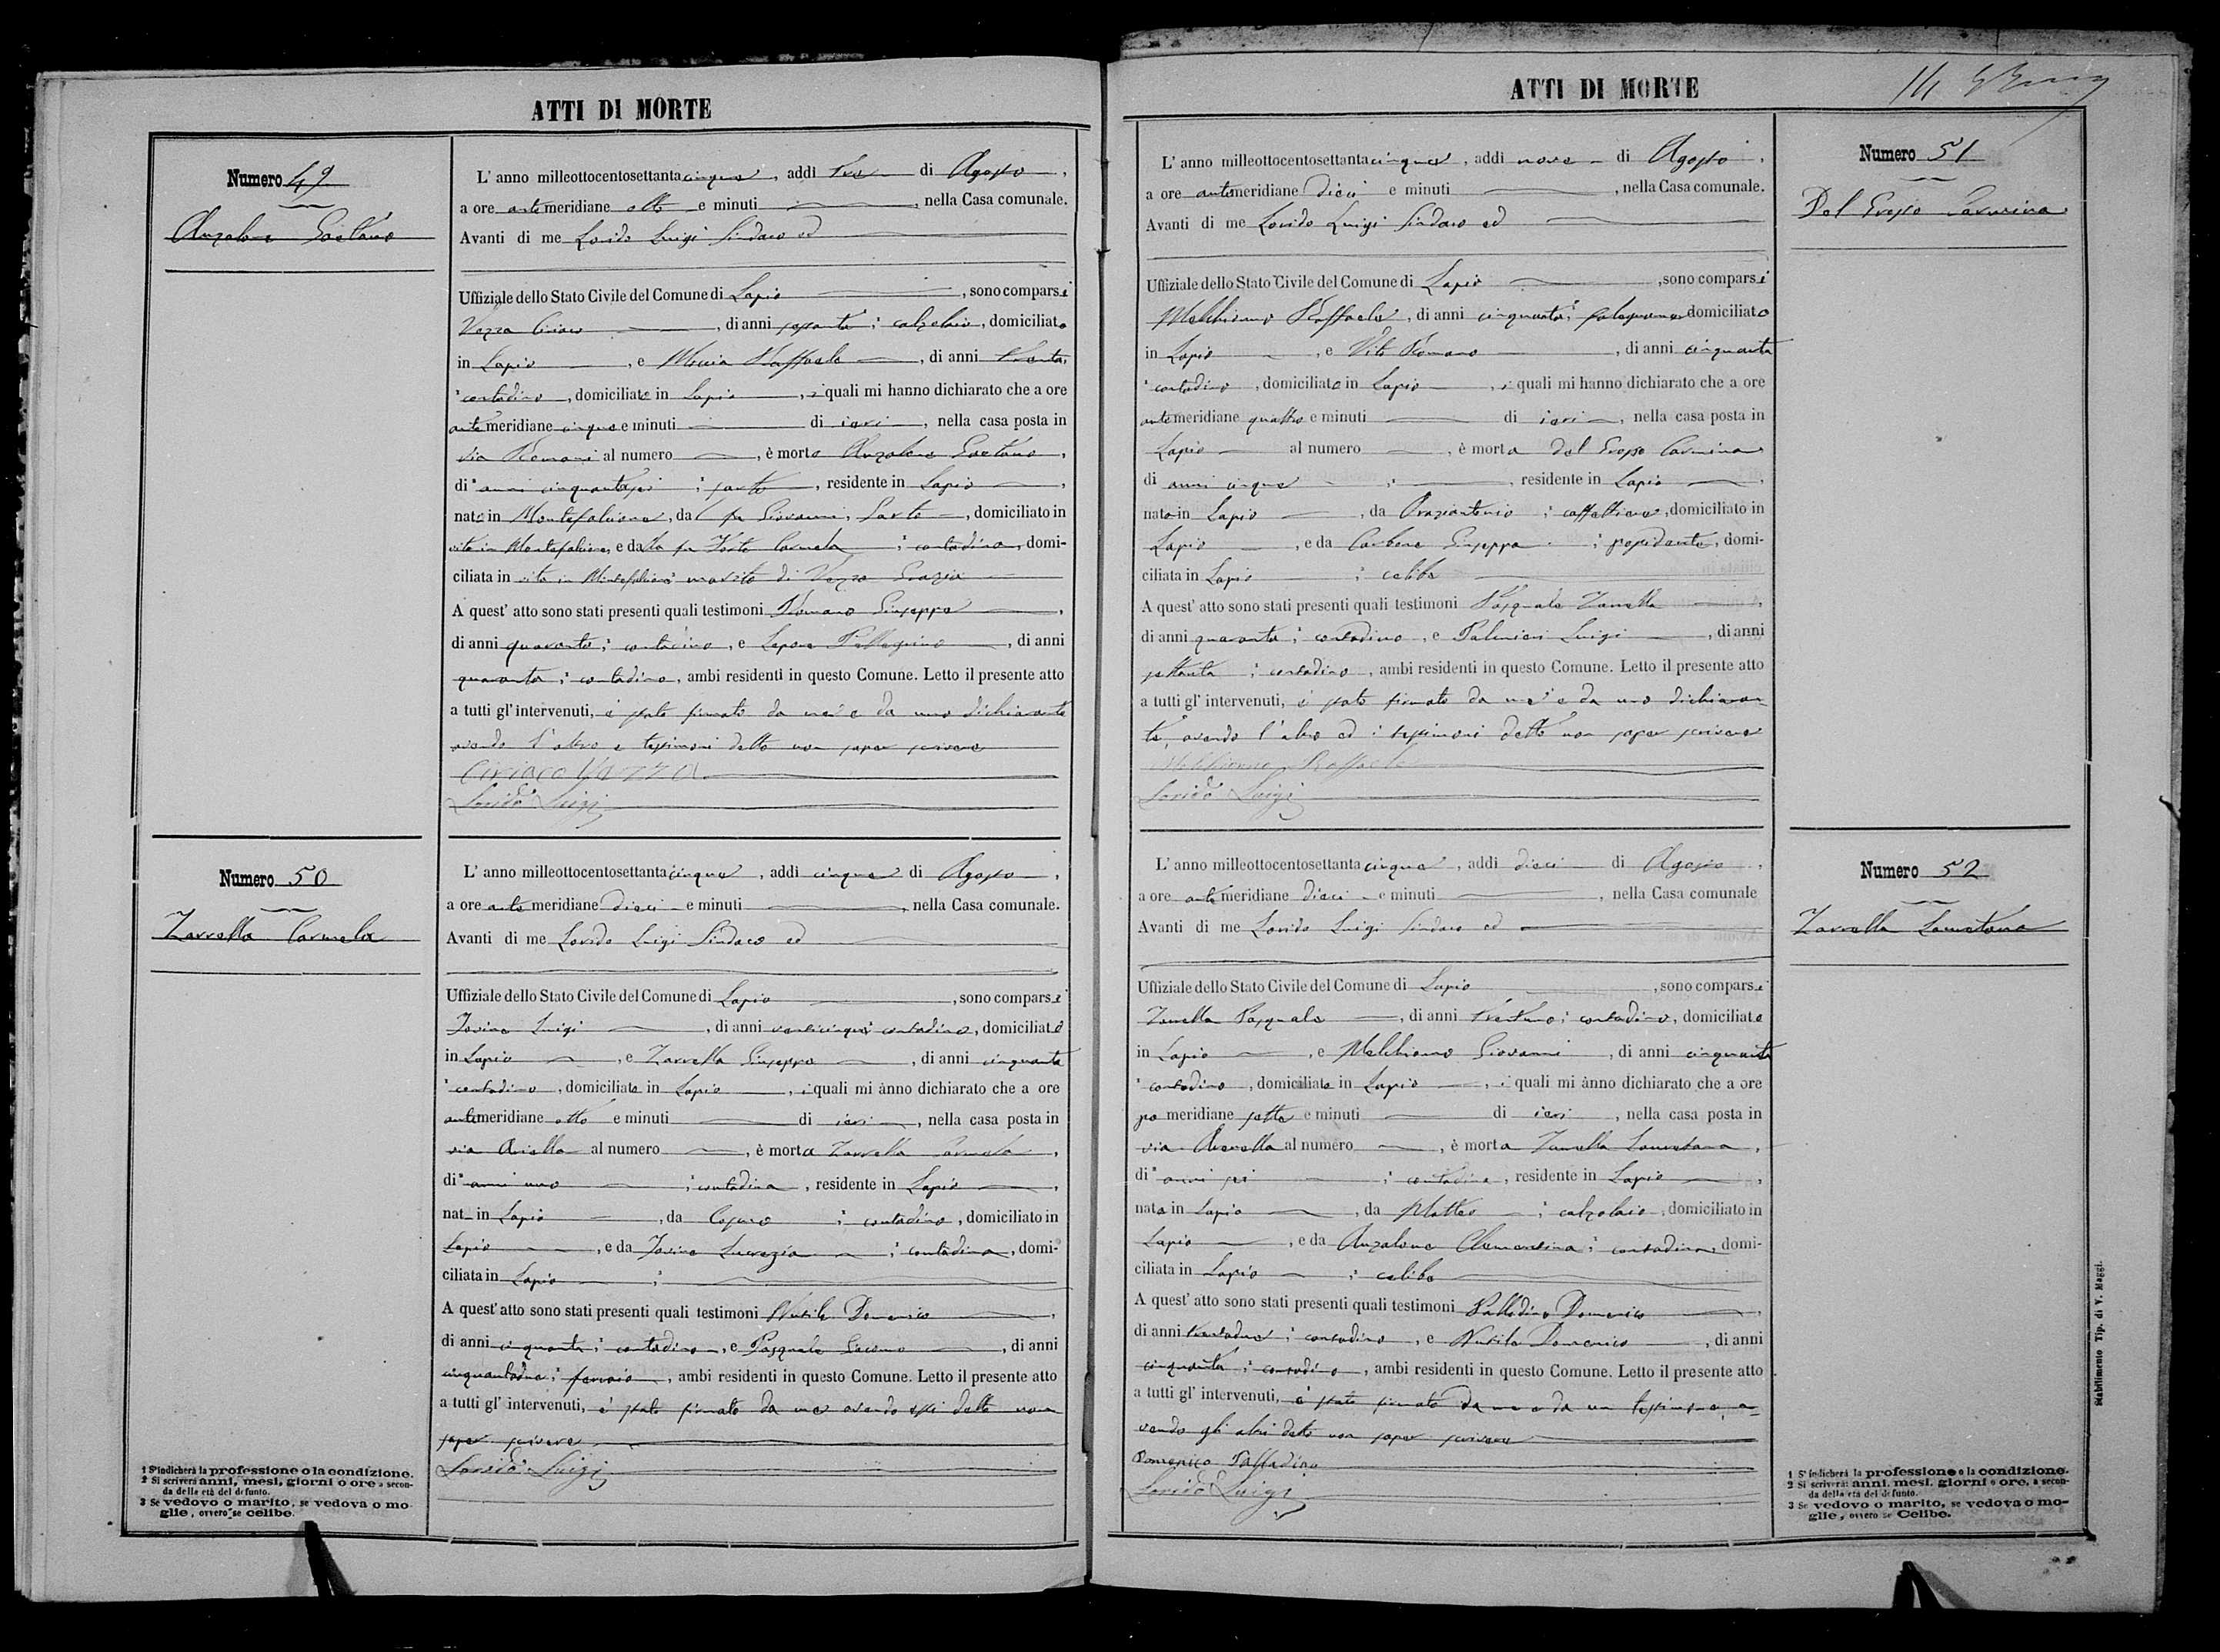 ATTI DI MORTE
Numero 49
Anzalone Gaetano
L' anno milleottocentosettantacinque, addi tre di Agosto,
a ore antemeridiane otto e minuti, nella Casa comunale.
Avanti di me Lorido Luigi Sindaco ed
Uffiziale dello Stato Civile del Comune di Lapio, sono comparsi
Vazza Ciriaco, di anni sessanta; calzolaio, domiciliato
in Lapio, e Raffaele, di anni trenta,
contadino, domiciliato in Lapio, i quali mi hanno dichiarato che a ore
antemeridiane cinque e minuti di ieri, nella casa posta in
via Romani al numero, è morto Anzalone Gaetano,
di anni cinquantasei; sarto, residente in Lapio,
nato in Montefalcione, da fu Giovanni, Sarto, domiciliato in
vita in Montefalcione, e dalla fu Carmela; contadina, domi-
ciliata in vita in Montefalcione marito di Vazza Grazia
A quest' atto sono stati presenti quali testimoni Romano Giuseppe,
di anni quaranta; contadino, e Lepore Pellegrino, di anni
quaranta; contadino, ambi residenti in questo Comune. Letto il presente atto
a tutti gl' intervenuti, è stato firmato da me e da uno dichiarante
avendo l'altro e testimoni detto non saper scrivere
Ciriaco Vazza
Lorido Luigi
Numero 50
Zarrella Carmela
L' anno milleottocentosettantacinque, addi cinque di Agosto,
a ore antemeridiane dieci e minuti, nella Casa comunale.
Avanti di me Lorido Luigi Sindaco ed
Uffiziale dello Stato Civile del Comune di Lapio, sono comparsi
Iovine Luigi, di anni venticinque contadino, domiciliato
in Lapio, e Zarrella Giuseppe, di anni cinquanta
contadino, domiciliato in Lapio, i quali mi ànno dichiarato che a ore
antemeridiane otto e minuti di ieri, nella casa posta in
via al numero, è morta Zarrella Carmela,
di anni uno; contadina, residente in Lapio,
nat in Lapio, da; contadino, domiciliato in
Lapio, e da Iovine Lucrezia; contadina, domi-
ciliata in Lapio;
A quest' atto sono stati presenti quali testimoni Domenico,
di anni cinquanta; contadino, e Pasquale, di anni
cinquantadue; ferraio, ambi residenti in questo Comune. Letto il presente atto
a tutti gl' intervenuti, è stato firmato da me avendo essi detto non
saper scrivere
Lorido Luigi
1 S'indicherà la professione o la condizione.
2 Si scriverà anni, mesi, giorni o ore a secon-
da della età del defunto.
3 Se vedovo o marito, se vedova o mo-
glie, ovvero se celibe.
ATTI DI MORTE
14
Numero 51
Del Grosso Carmina
L' anno milleottocentosettantacinque, addi nove di Agosto,
a ore antemeridiane dieci e minuti, nella Casa comunale.
Avanti di me Lorido Luigi Sindaco ed
Uffiziale dello Stato Civile del Comune di Lapio, sono comparsi
Melchionno Raffaele, di anni cinquanta; falegname domiciliato
in Lapio, e Vito Romano, di anni cinquanta
contadino, domiciliato in Lapio, i quali mi hanno dichiarato che a ore
antemeridiane quattro e minuti di ieri, nella casa posta in
Lapio al numero, è morta Del Grosso Carmina
di anni cinque; residente in Lapio,
nata in Lapio, da Oraziantonio; caffettiere, domiciliato in
Lapio, e da Carbone Giuseppa; possidente, domi-
ciliata in Lapio; celibe
A quest' atto sono stati presenti quali testimoni Pasquale Zarrella,
di anni quaranta; contadino, e Palmieri Luigi, di anni
settanta; contadino, ambi residenti in questo Comune. Letto il presente atto
a tutti gl' intervenuti, è stato firmato da me e da uno dichiaran-
te, avendo l'altro ed i testimoni detto non saper scrivere
Melchionno Raffaele
Lorido Luigi
Numero 52
Zarrella Lauretana
L' anno milleottocentosettantacinque, addi dieci di Agosto,
a ore antemeridiane dieci e minuti, nella Casa comunale
Avanti di me Lorido Luigi Sindaco ed
Uffiziale dello Stato Civile del Comune di Lapio, sono comparsi
Zarrella Pasquale, di anni trentuno; contadino, domiciliato
in Lapio, e Melchionno Giovanni, di anni cinquanta
contadino, domiciliato in Lapio, i quali mi ànno dichiarato che a ore
pomeridiane sette e minuti di ieri, nella casa posta in
via al numero, è morta Zarrella Lauretana,
di anni sei; contadina, residente in Lapio,
nata in Lapio, da Matteo; calzolaio, domiciliato in
Lapio, e da Anzalone Clementina; contadina, domi-
ciliata in Lapio; celibe
A quest' atto sono stati presenti quali testimoni Palladino Domenico,
di anni trentadue; contadino, e Domenico, di anni
cinquanta; contadino, ambi residenti in questo Comune. Letto il presente atto
a tutti gl' intervenuti, è stato firmato da me e da un testimone, a-
vendo gli altri detto non saper scrivere
Domenico Palladino
Lorido Luigi
1 S'indicherà la professione o la condizione.
2 Si scriverà: anni, mesi, giorni o ore, a secon-
da della età del defunto.
3 Se vedovo o marito, se vedova o mo-
glie, ovvero se Celibe.
Stabilimento Tip. di V. Maggi.